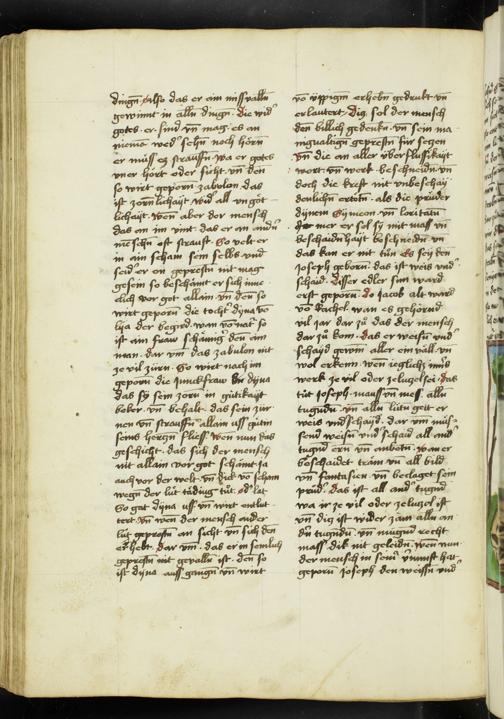 dingn. Also das er ain missvalln
gewinnt in alln dingn. die wid'
gotes er sind vn mag es an
niema wed' sehn noch hörn
er müss es straffn. wa er gotes
vner hört oder sicht. vn den
so wirt geporn zabolon das
ist zornlichayt wid' all vngöt
lichayt. Wen aber der mensch
das an im vint. das er an andn
menschn oft strauft. So velt er
in ain scham sein selbs vnd
seid er on gepresten nit mag
gesein so beschämt er sich inne
clich vor got allain vn den so
wirt geporn die tocht' dyna vo
lya der begird. wan vo nat' so
ist ain fraw schämig' den ain
man. dar vm das zabulon nit
ze vil zürn. So wirt nach im
geporn die junckfraw die dyna
das sy sein zorn in gütikayt
beker vn behalt. das sein zür
nen vn strauffn allain uss gütin
seins herczn fliess. Wen nun das
geschicht. das sich der mensch
nit allain vor got schämt ja
auch vor der welt. vn dick vo scham
wegn der lüt tading tüt. od' lat
So gat dyna uss vn wirt entlut
tert. Vn wen der mensch ander
lüt geprestn an sicht vn sich den
er hebt. dar vm. das er in semlich
geprestn nit gevalln ist. den so
ist dyna auss gangn vn wirt
vo üppigm erhebn gedrukt vn
erlautert. Dig sol der mensch
den billich gedenkn vn sein ma
nigualtign geprestn für segen
Vn die an aller überflussikayt
wort vn werk beschneidn vn
doch die kreft nit vnbeschay
denlichn ertötn. als die prüder
dynem Symeon vn loritatn
mer er sol sy mit mass vn
beschaidenhayt beschneidn vn
das kan er nit tün Es sey den
joseph geborn. das ist weis vnd
schaid. Disser edler sun ward
erst geporn. Do jacob alt ward
vo Rachel. wan es gehörnd
vil jar dar zu das der mensch
dar zu kom. das er weisn vnd
schayd gewin aller ein väll. vn
wol erkenn wen ieglichs mins
werk ze vil oder zelugelsei. das
tüt joseph. maussvn mess. alln
tugndn. vn alln lütn geit er
weis vnd schayd. dar vm müs
send weisn vnd schaid all and'
tugnd ern vn anbetn. Wan er
beschaidet träm vn all bild
vn fantasien vn berlaget sein
prüd'. das ist all and' tugnd
wa ir ze vil oder zelugel ist
vn dig ist wider zam alln an
dn tugndn. vn mugnd recht
mass dik nit geleidn. Wen nun
der mensch in sein' v'nunft hat
geporn joseph den weissn vnd